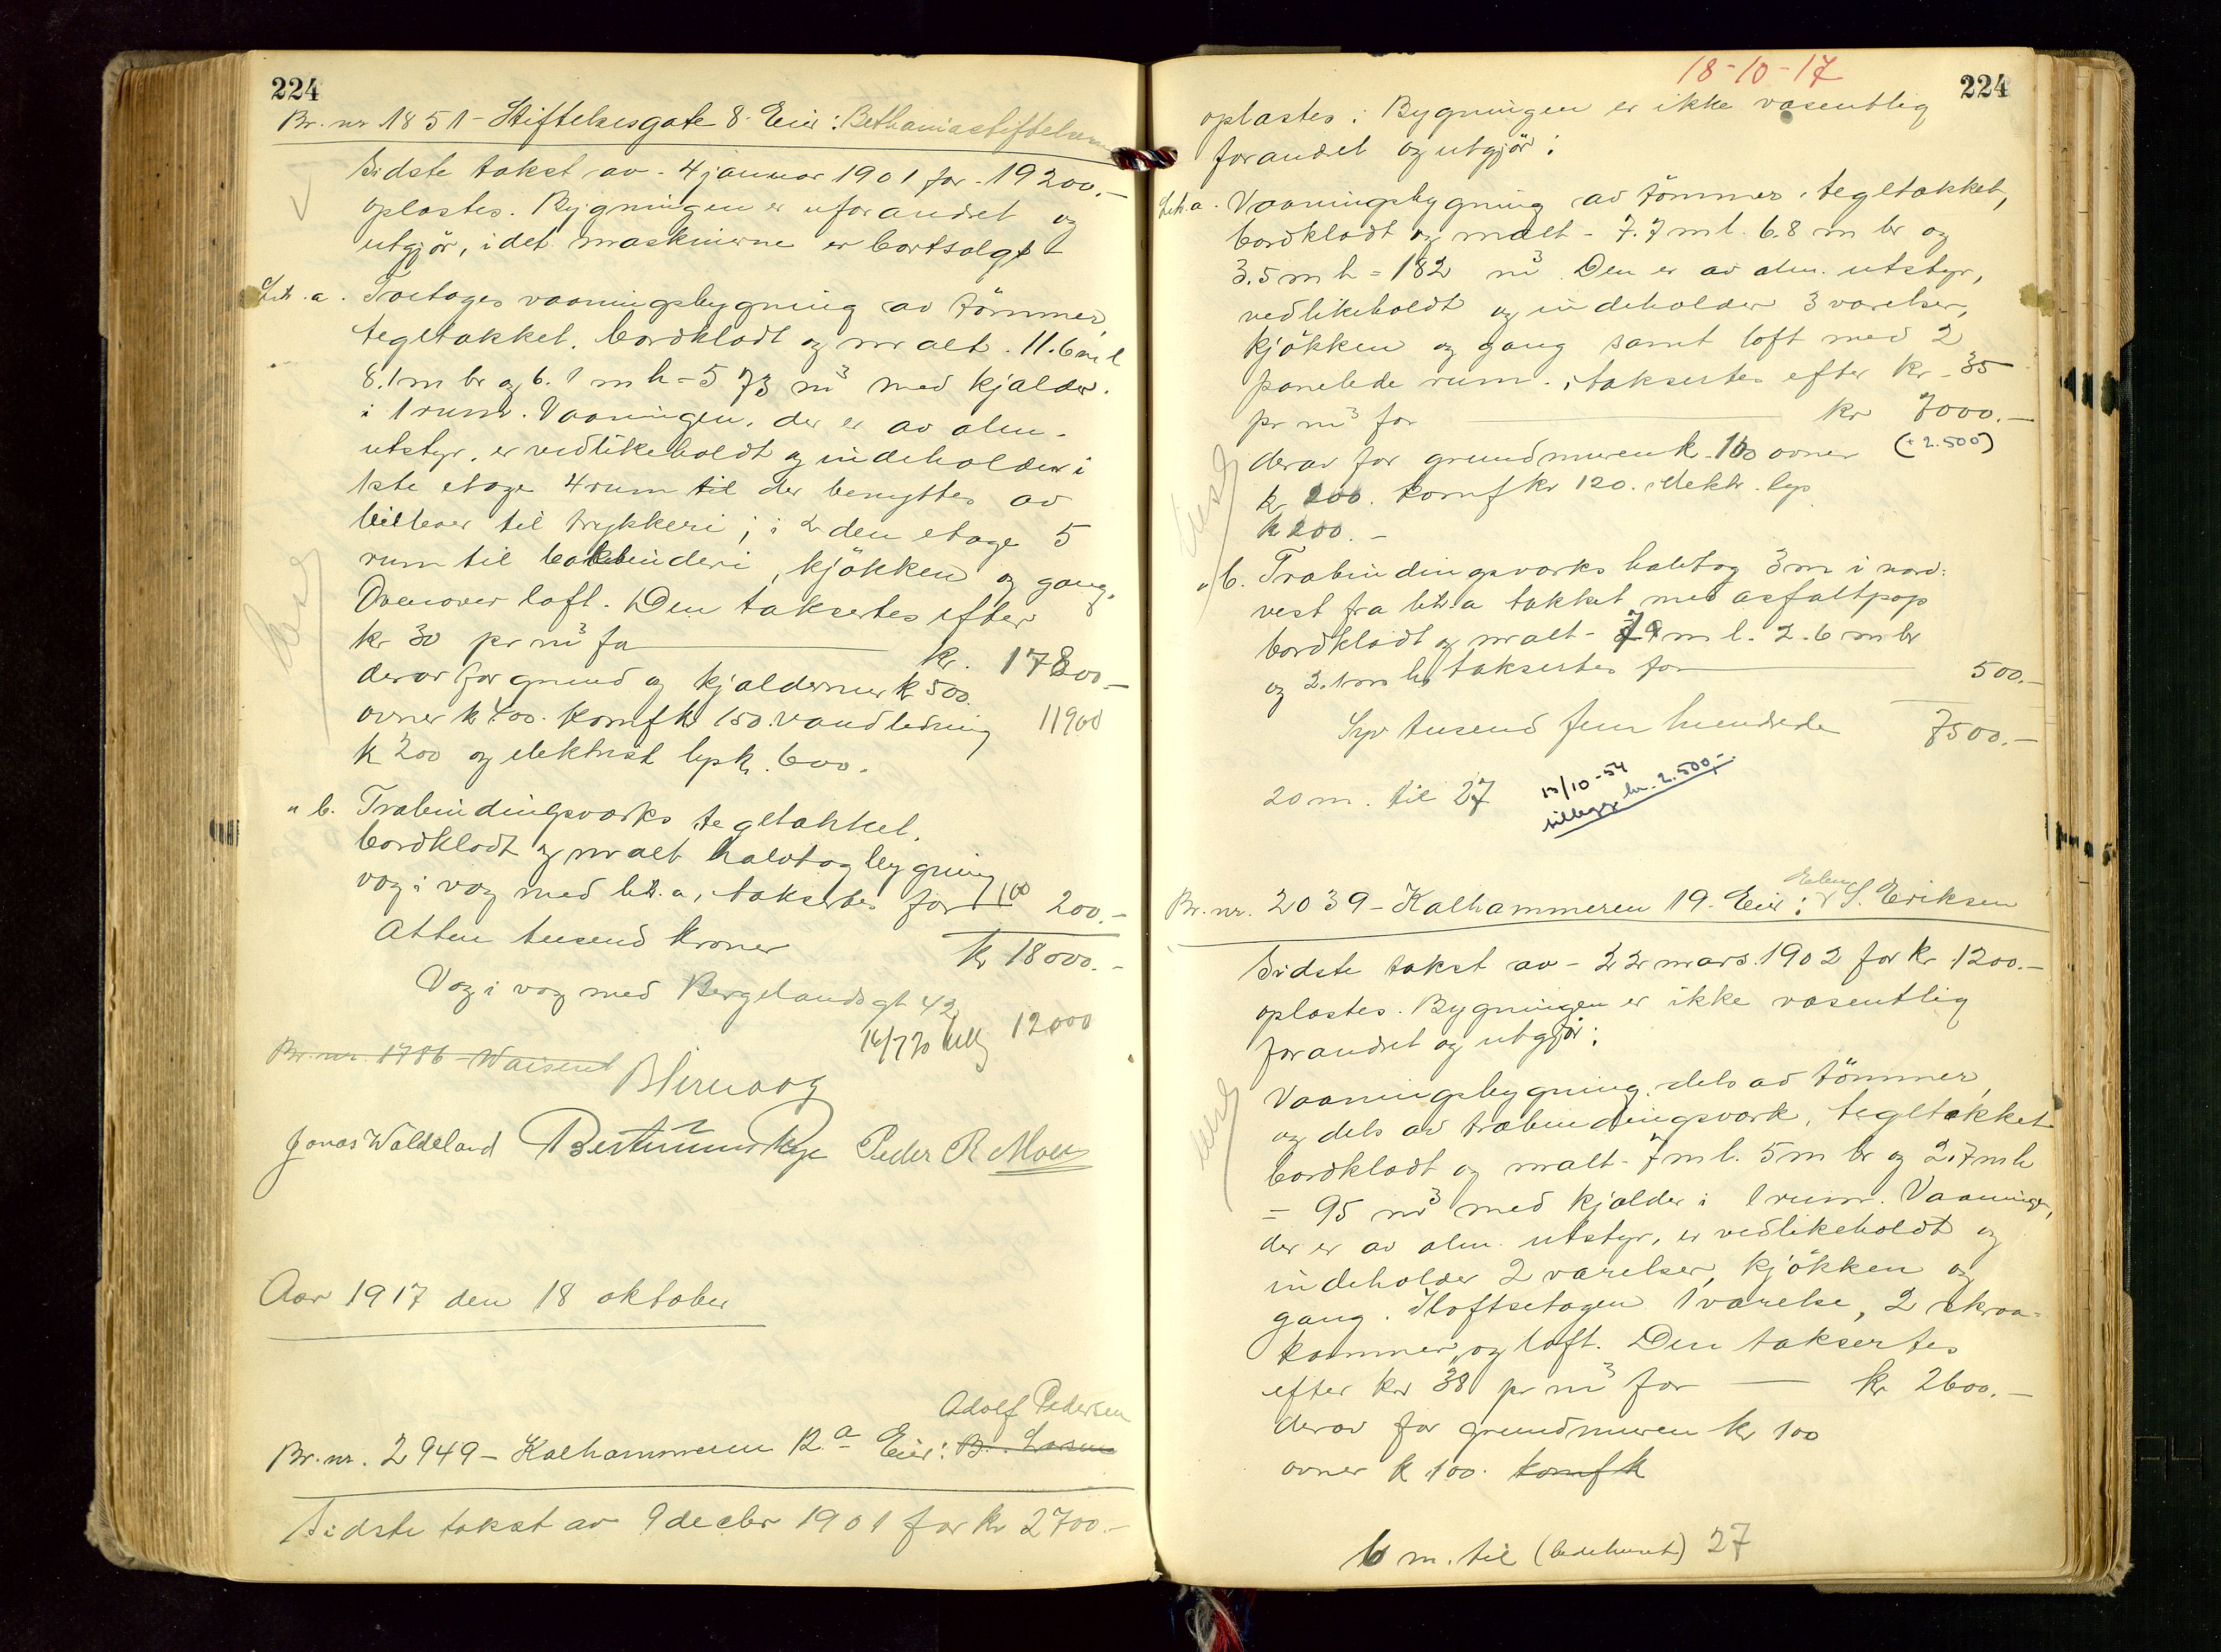 224
Br. nr. 1851 - Stiftelsesgate 8. Eier: Bethaniastiftelsen
Sidste takst av - 4 januar 1901 for - 19200.-
oplæstes. Bygningen er uforandret og
utgjör, idet maskinerne er bortsolgt
Litr. a. Toetages vaaningsbygning av tömmer,
tegltækket, bordklædt og malt. 11.6 m l
8.1 m br og 6.1 m h = 573 m³ med kjælder
i 1 rum. Vaaningen, der er av alm.
utstyr, er vedlikeholdt og indeholder i
1ste etage 4 rum til der benyttes av
til trykkeri; i 2den etage 5
rum til bokbinderi, kjökken og gang.
Ovenover loft. Den taksertes efter
kr 30 pr m³ for kr. 17800.-
derav for grund og kjældermur kr 500.
ovner kr 400. Komf kr 150. vandledning 11900
kr 200 og elektrisk lys kr. 600.
" b. Træbindingsværks tegltækket,
bordklædt og malt halvtagbygning
væg i væg med litr. a, taksertes for 100 200.-
Atten tusend kroner kr 18000.-
Væg i væg med Bergelandsgt 42
14/7 20 12000
Br. nr. 1786 - Waisenh
Jonas Waldeland Peder R Moe
Aar 1917 den 18 oktober
Adolf Pedersen
Br. nr. 2949 - Kalhammeren 12.a Eier: B. Larsen
Sidste takst av 9 decbr 1901 for kr 2700.-
18-10-17
224
oplæstes: Bygningen er ikke væsentlig
forandret og utgjör:
Litr. a. Vaaningsbygning av tömmer, tegltækket,
bordklædt og malt - 7.7 m l. 6.8 m br og
3.5 m h = 182 m³. Den er av alm. utstyr,
vedlikeholdt og indeholder 3 værelser,
kjökken og gang samt loft med 2
panelede rum. taksertes efter kr - 35
pr m³ for kr 7000.-
derav for grundmuren k. 100 ovner (+ 2.500)
kr 200. Komf kr 120. elektr. lys
kr 200.-
" b. Træbindingsværks halvtag 3 m i nord-
vest fra litr. a tækket med asfaltpap
bordklædt og malt - m l. 2.6 m br
og 2.1 m h, taksertes for 500.-
Syv tusend fem hundrede 7500.-
20 m. til 27 13/10-54
tillegg kr. 2.500,-
Eier
Br. nr. 2039 - Kalhammeren 19. Eier: S. Eriksen
Sidste takst av - 22 mars 1902 for kr 1200.-
oplæstes. Bygningen er ikke væsentlig
forandret og utgjör:
Vaaningsbygning, dels av tömmer,
og dels av træbindingsværk, tegltækket
bordklædt og malt - 7 m l. 5 m br og 2.7 m h
= 95 m³ med kjælder i 1 rum. Vaaningen,
der er av alm. utstyr, er vedlikeholdt og
indeholder 2 værelser, kjökken og
gang. I loftsetagen 1 værelse, 2 skraa-
kammer, og loft. Den taksertes
efter kr 38 pr m³ for kr 2600.-
derav for grundmuren kr 100
ovner kr 100. komf k
6 m. til (bedehuset) 27